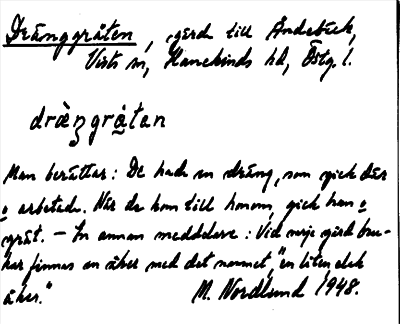 Dränggråten, gärd till Andebäck,
Vists sn, Hanekinds hd, Östg. l.
dràŋgrå̀tan
Man berättar: De hade en dräng, som gick där
o arbetade. När de kom till honom, gick han o
grät. – En annan meddelare: Vid varje gärd bru-
kar finnas en åker med det namnet, "en liten elak
åker."
M. Nordlund 1948.